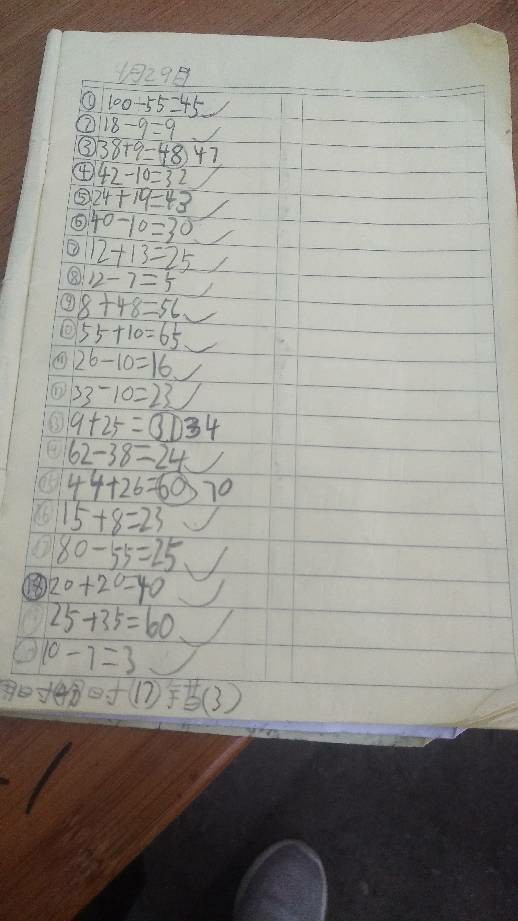 4月29日
① 100-55=45 ✓
② 18-9=9 ✓
③ 38+9=48 47
④ 42-10=32 ✓
⑤ 24+19=43 ✓
⑥ 40-10=30 ✓
⑦ 12+13=25 ✓
⑧ 12-7=5 ✓
⑨ 8+48=56 ✓
⑩ 55+10=65 ✓
⑪ 26-10=16 ✓
⑫ 33-10=23 ✓
⑬ 9+25=31 34
⑭ 62-38=24 ✓
⑮ 44+26=60 70
⑯ 15+8=23 ✓
⑰ 80-55=25 ✓
⑱ 20+20=40 ✓
⑲ 25+35=60 ✓
⑳ 10-7=3 ✓
对(17)错(3)